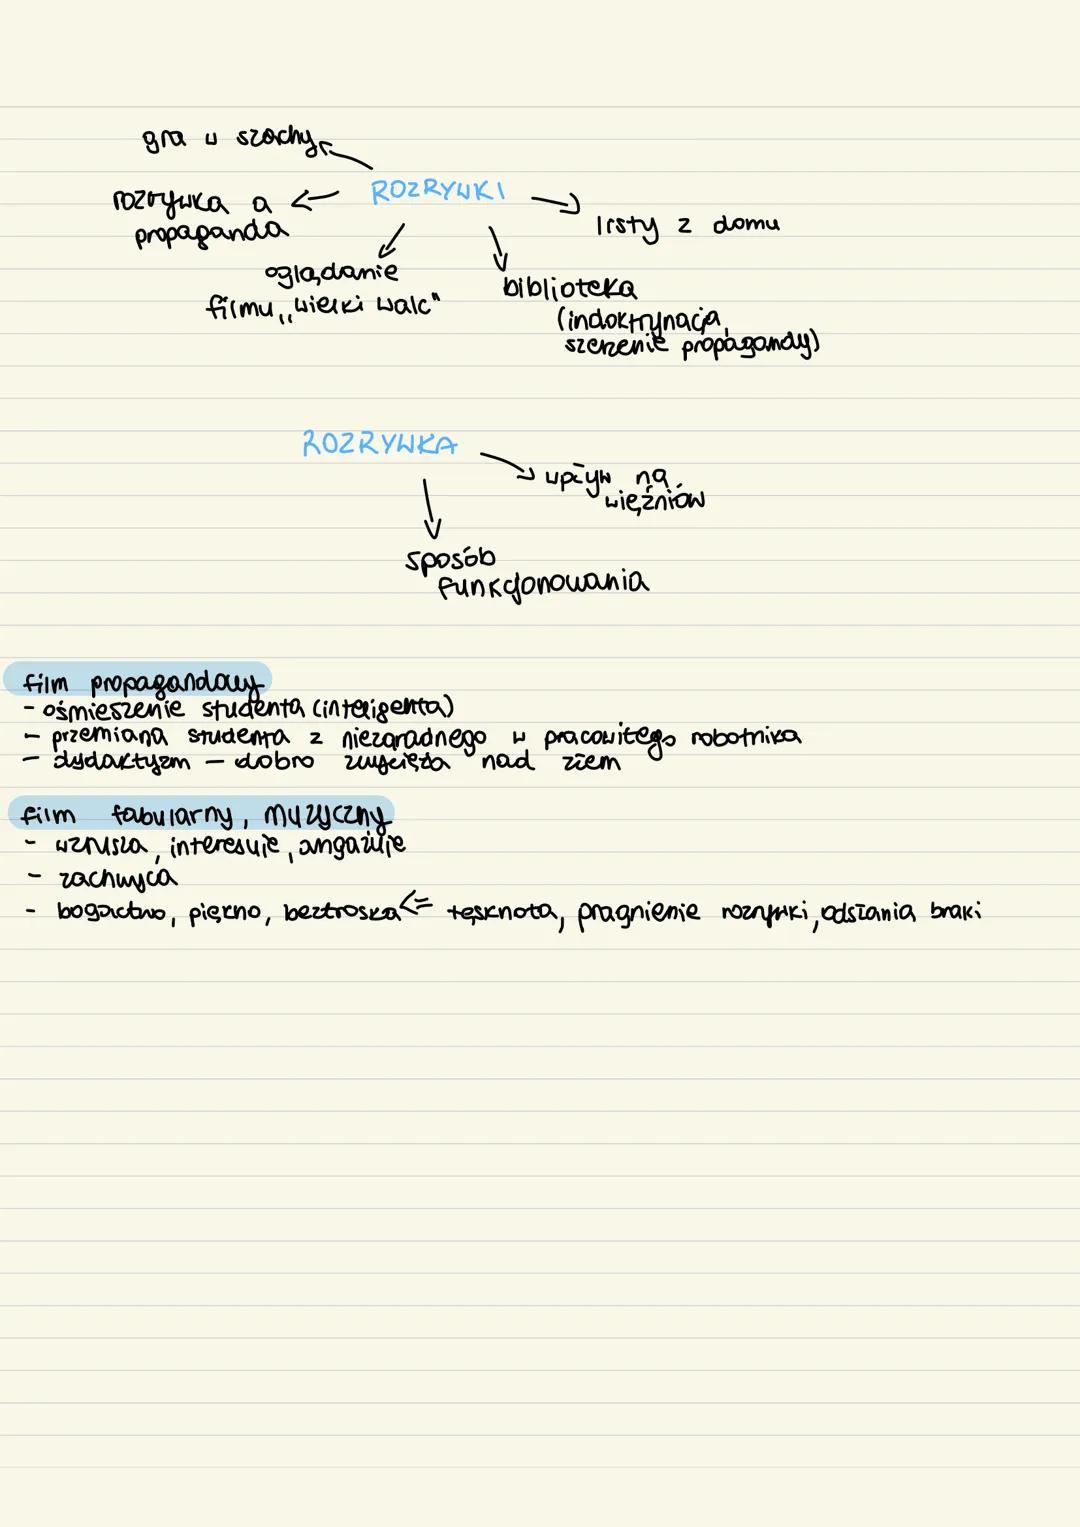 gra w szachy
ROZRYWKI
rozrywka a
propaganda
listy z domu
oglądanie
filmu „wielki walc"
biblioteka
(indoktrynacja,
szerzenie propagandy)
ROZRYWKA
wpływ na
więźniów
sposób
funkcjonowania
film propagandowy
- ośmieszenie studenta (inteligenta)
- przemiana studenta z niezaradnego w pracowitego robotnika
- dydaktyzm - dobro zwycięża nad złem
film fabularny, muzyczny
- wzrusza, interesuje, angażuje
- zachwyca
- bogactwo, piękno, beztroska <= tęsknota, pragnienie rozrywki, odsłania braki